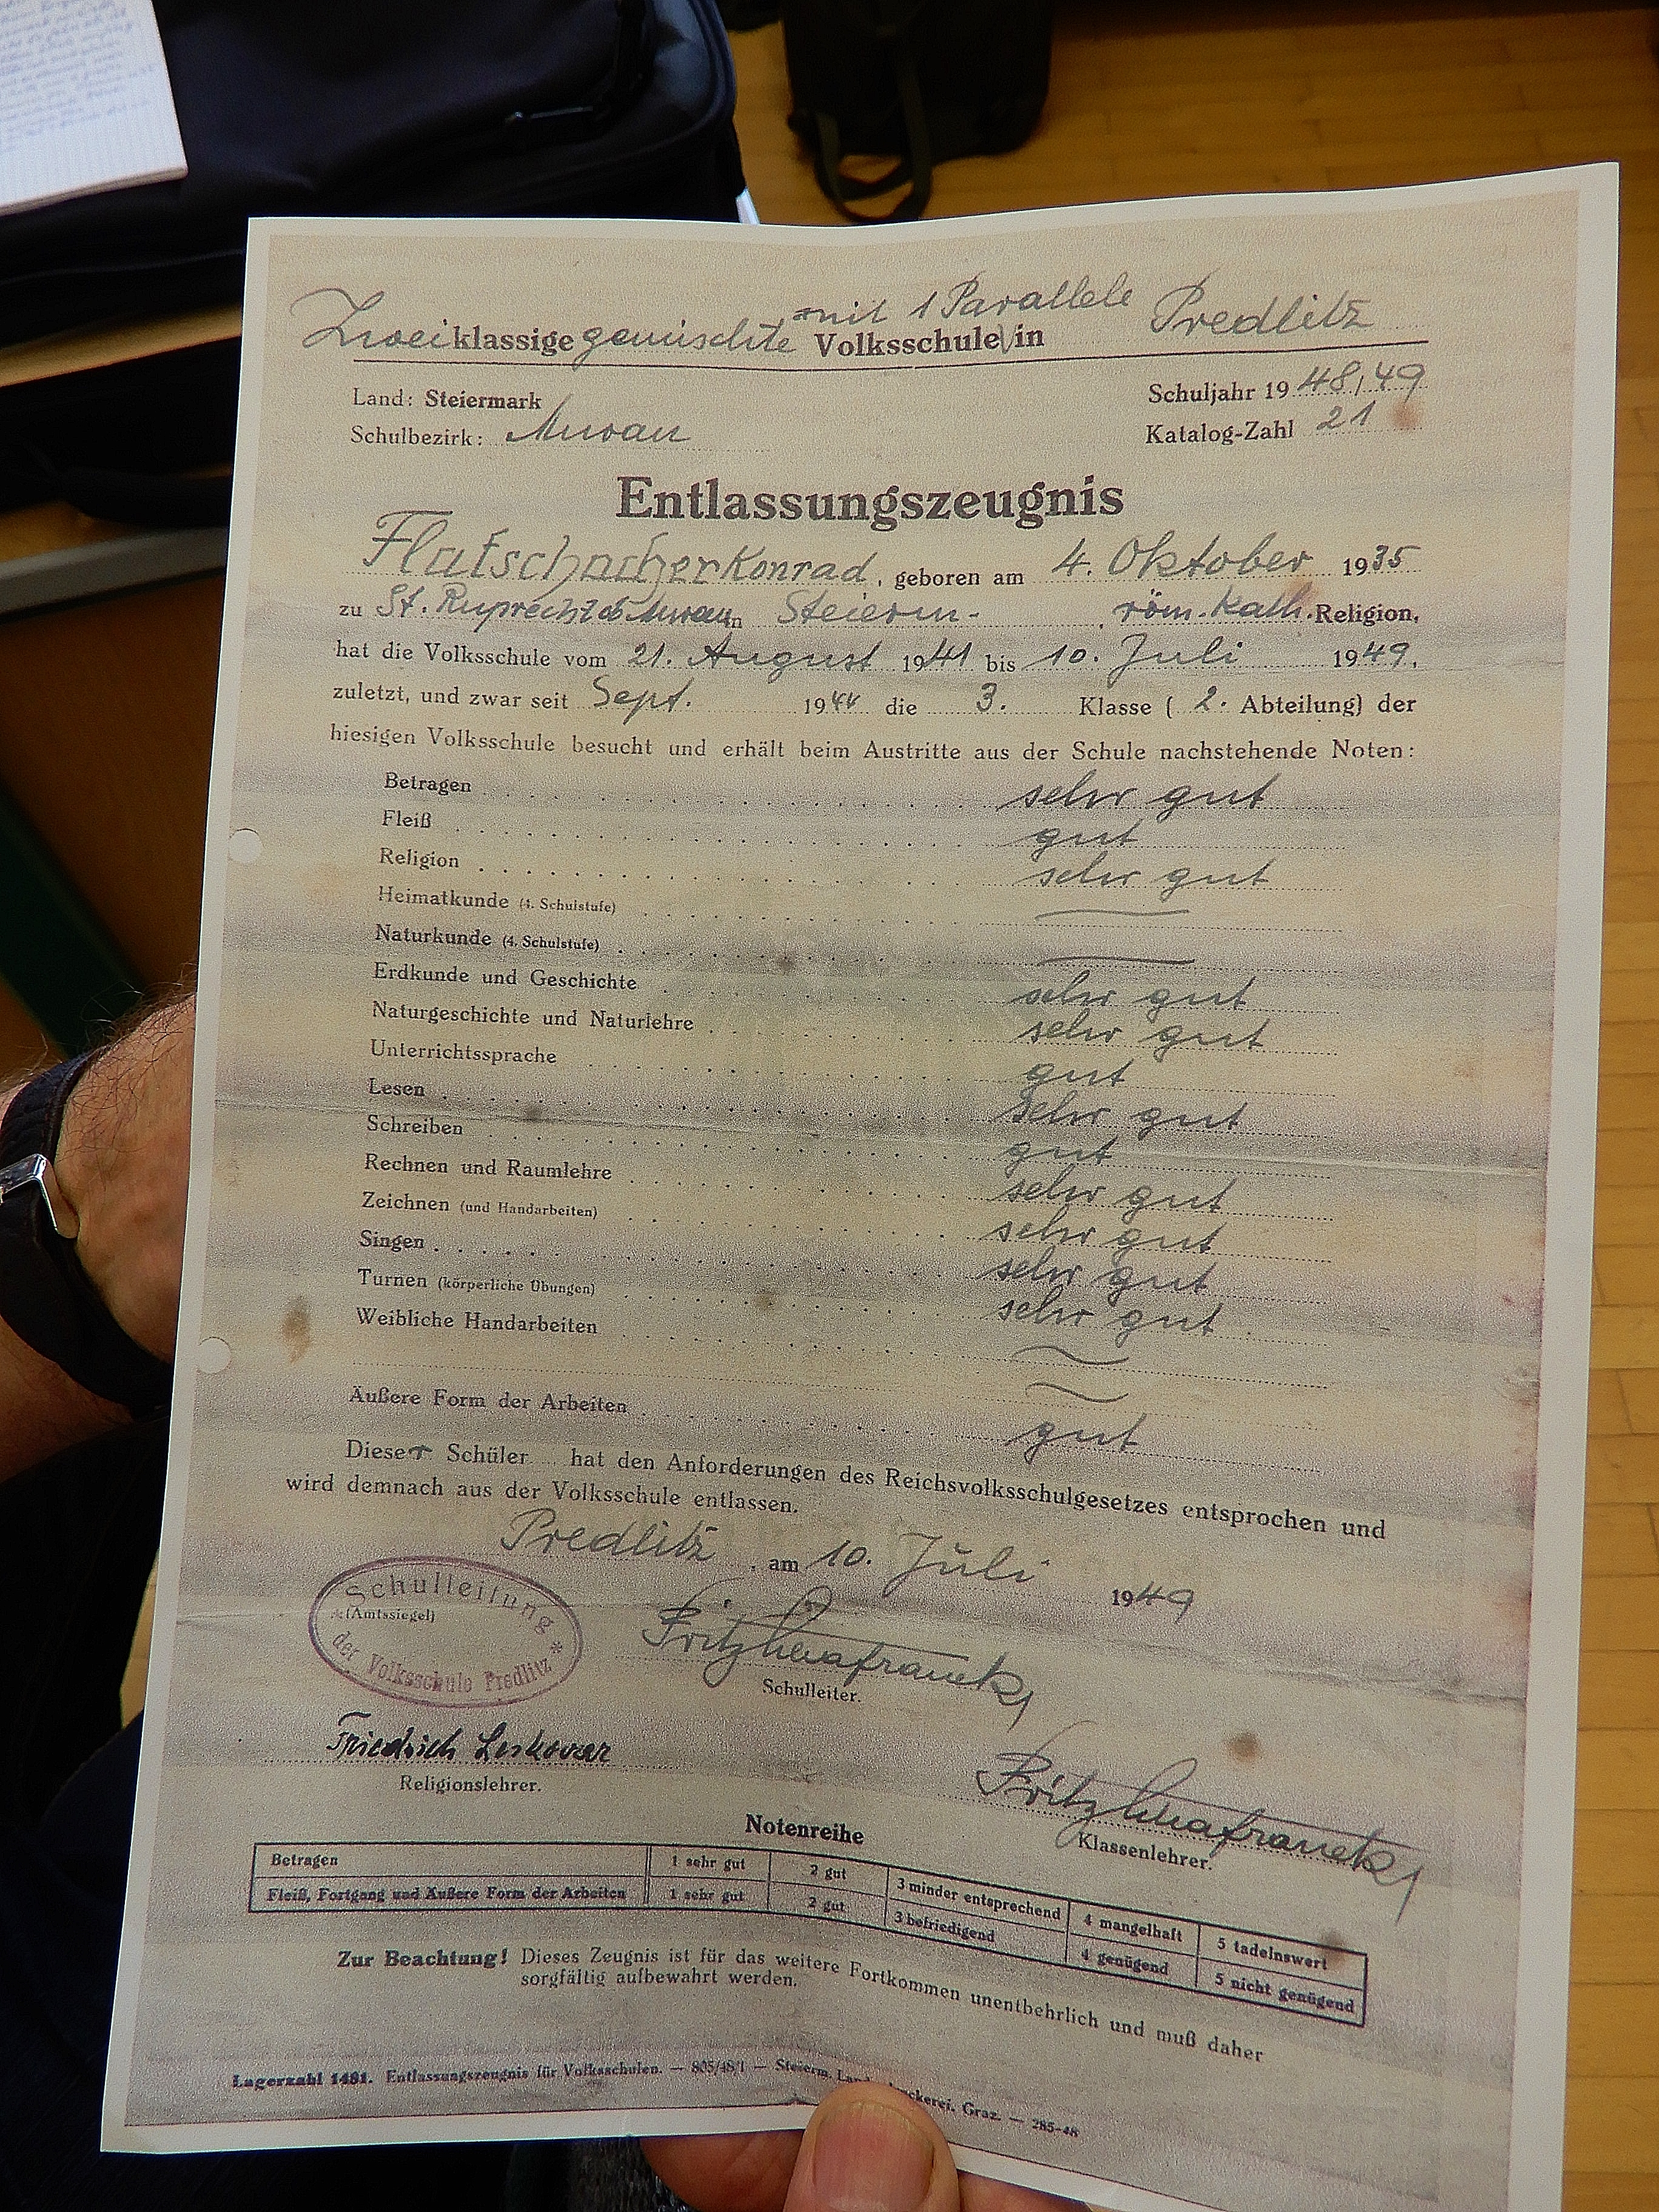 Zweiklassige gemischte mit 1 Parallele Volksschule in Predlitz
Land: Steiermark
Schuljahr 1948/49
Schulbezirk: Murau
Katalog-Zahl 21
Entlassungszeugnis
Flatschacher Konrad, geboren am 4. Oktober 1935
zu St. Ruprecht ob Murau in Steierm. , röm. kath. Religion,
hat die Volksschule vom 21. August 1941 bis 10. Juli 1949,
zuletzt, und zwar seit Sept. 1944 die 3. Klasse ( 2. Abteilung) der
hiesigen Volksschule besucht und erhält beim Austritte aus der Schule nachstehende Noten:
Betragen sehr gut
Fleiß gut
Religion sehr gut
Heimatkunde (4. Schulstufe) —
Naturkunde (4. Schulstufe) —
Erdkunde und Geschichte sehr gut
Naturgeschichte und Naturlehre sehr gut
Unterrichtssprache gut
Lesen sehr gut
Schreiben gut
Rechnen und Raumlehre sehr gut
Zeichnen (und Handarbeiten) sehr gut
Singen sehr gut
Turnen (körperliche Übungen) sehr gut
Weibliche Handarbeiten ~
~
Äußere Form der Arbeiten gut
Dieser Schüler hat den Anforderungen des Reichsvolksschulgesetzes entsprochen und
wird demnach aus der Volksschule entlassen.
Predlitz, am 10. Juli 1949
Schulleitung
(Amtssiegel)
der Volksschule Predlitz
Fritz
Schulleiter.
Friedrich Leskovar
Religionslehrer.
Fritz
Klassenlehrer.
Notenreihe
Betragen 1 sehr gut 2 gut 3 minder entsprechend 4 mangelhaft 5 tadelnswert
Fleiß, Fortgang und Äußere Form der Arbeiten 1 sehr gut 2 gut 3 befriedigend 4 genügend 5 nicht genügend
Zur Beachtung! Dieses Zeugnis ist für das weitere Fortkommen unentbehrlich und muß daher
sorgfältig aufbewahrt werden.
Lagerzahl 1481. Entlassungszeugnis für Volksschulen. — 805/48/I — Steierm. Graz. — 285-48